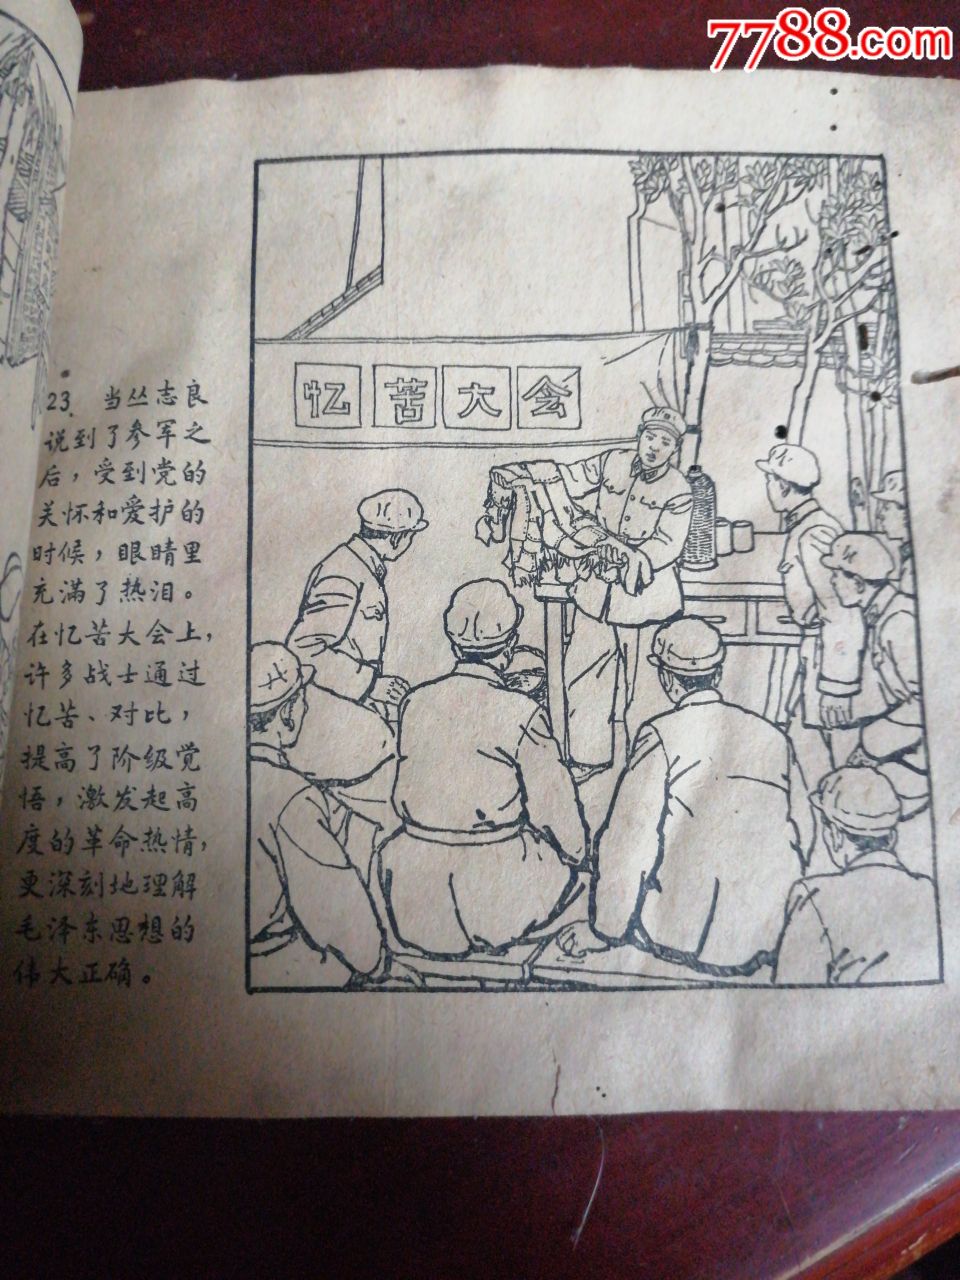 7788.com
忆苦大会
23. 当丛志良
说到了参军之
后，受到党的
关怀和爱护的
时候，眼睛里
充满了热泪。
在忆苦大会上，
许多战士通过
忆苦、对比，
提高了阶级觉
悟，激发起高
度的革命热情，
更深刻地理解
毛泽东思想的
伟大正确。